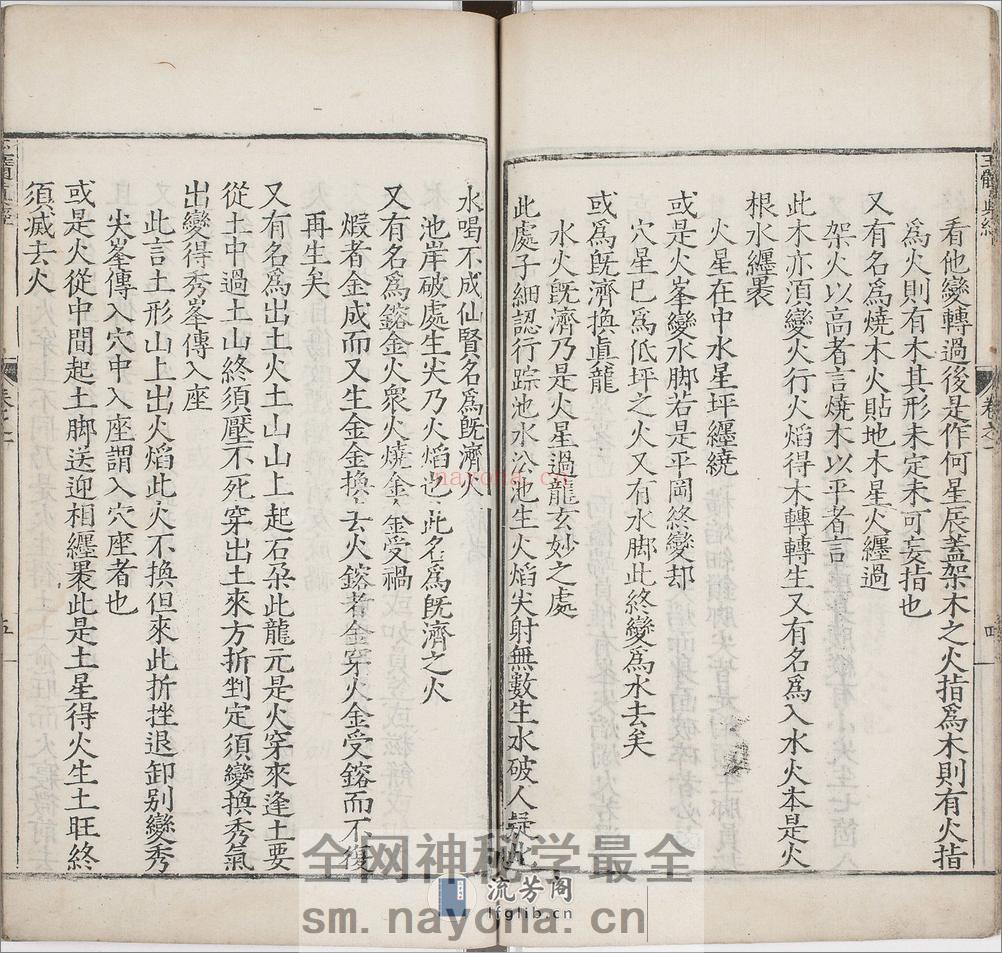 看他變轉過後是作何星辰蓋架木之火指爲木則有火指
爲火則有木其形未定未可妄指也
又有名爲燒木火貼地木星火纏過
架火以高者言燒木以平者言
此木亦湏變火行火焰得木轉轉生又有名爲入水火本是火
根水纏褁
火星在中水星坪纏繞
或是火峯變水脚若是平岡終變却
穴星已爲低坪之火又有水脚此終變爲水去矣
或爲旣濟換眞龍
水火旣濟乃是火星過龍玄妙之處
此處子細認行踪池水公池生火焰尖射無數生水破人疑此
水唱不成仙賢名爲旣濟火
池岸破處生尖乃火焰也此名爲旣濟之火
又有名爲鎔金火衆火燒金金受禍
煆者金成而又生金金換去火鎔者金穿火金受鎔而不復
再生矣
又有名爲出土火土山山上起石朶此龍元是火穿來逢土要
從土中過土山終須壓不死穿出土來方折剉定須變換秀氣
出變得秀峯傳入座
此言土形山上出火焰此火不換但來此折挫退卸别變秀
尖峯傳入穴中入座謂入穴座者也
或是火從中間起土脚送迎相纏褁此是土星得火生土旺終
須滅去火
卷之一
四
五
nayona.cn
全网神秘学最全
流芳阁
lfglib.cn
sm.nayona.cn